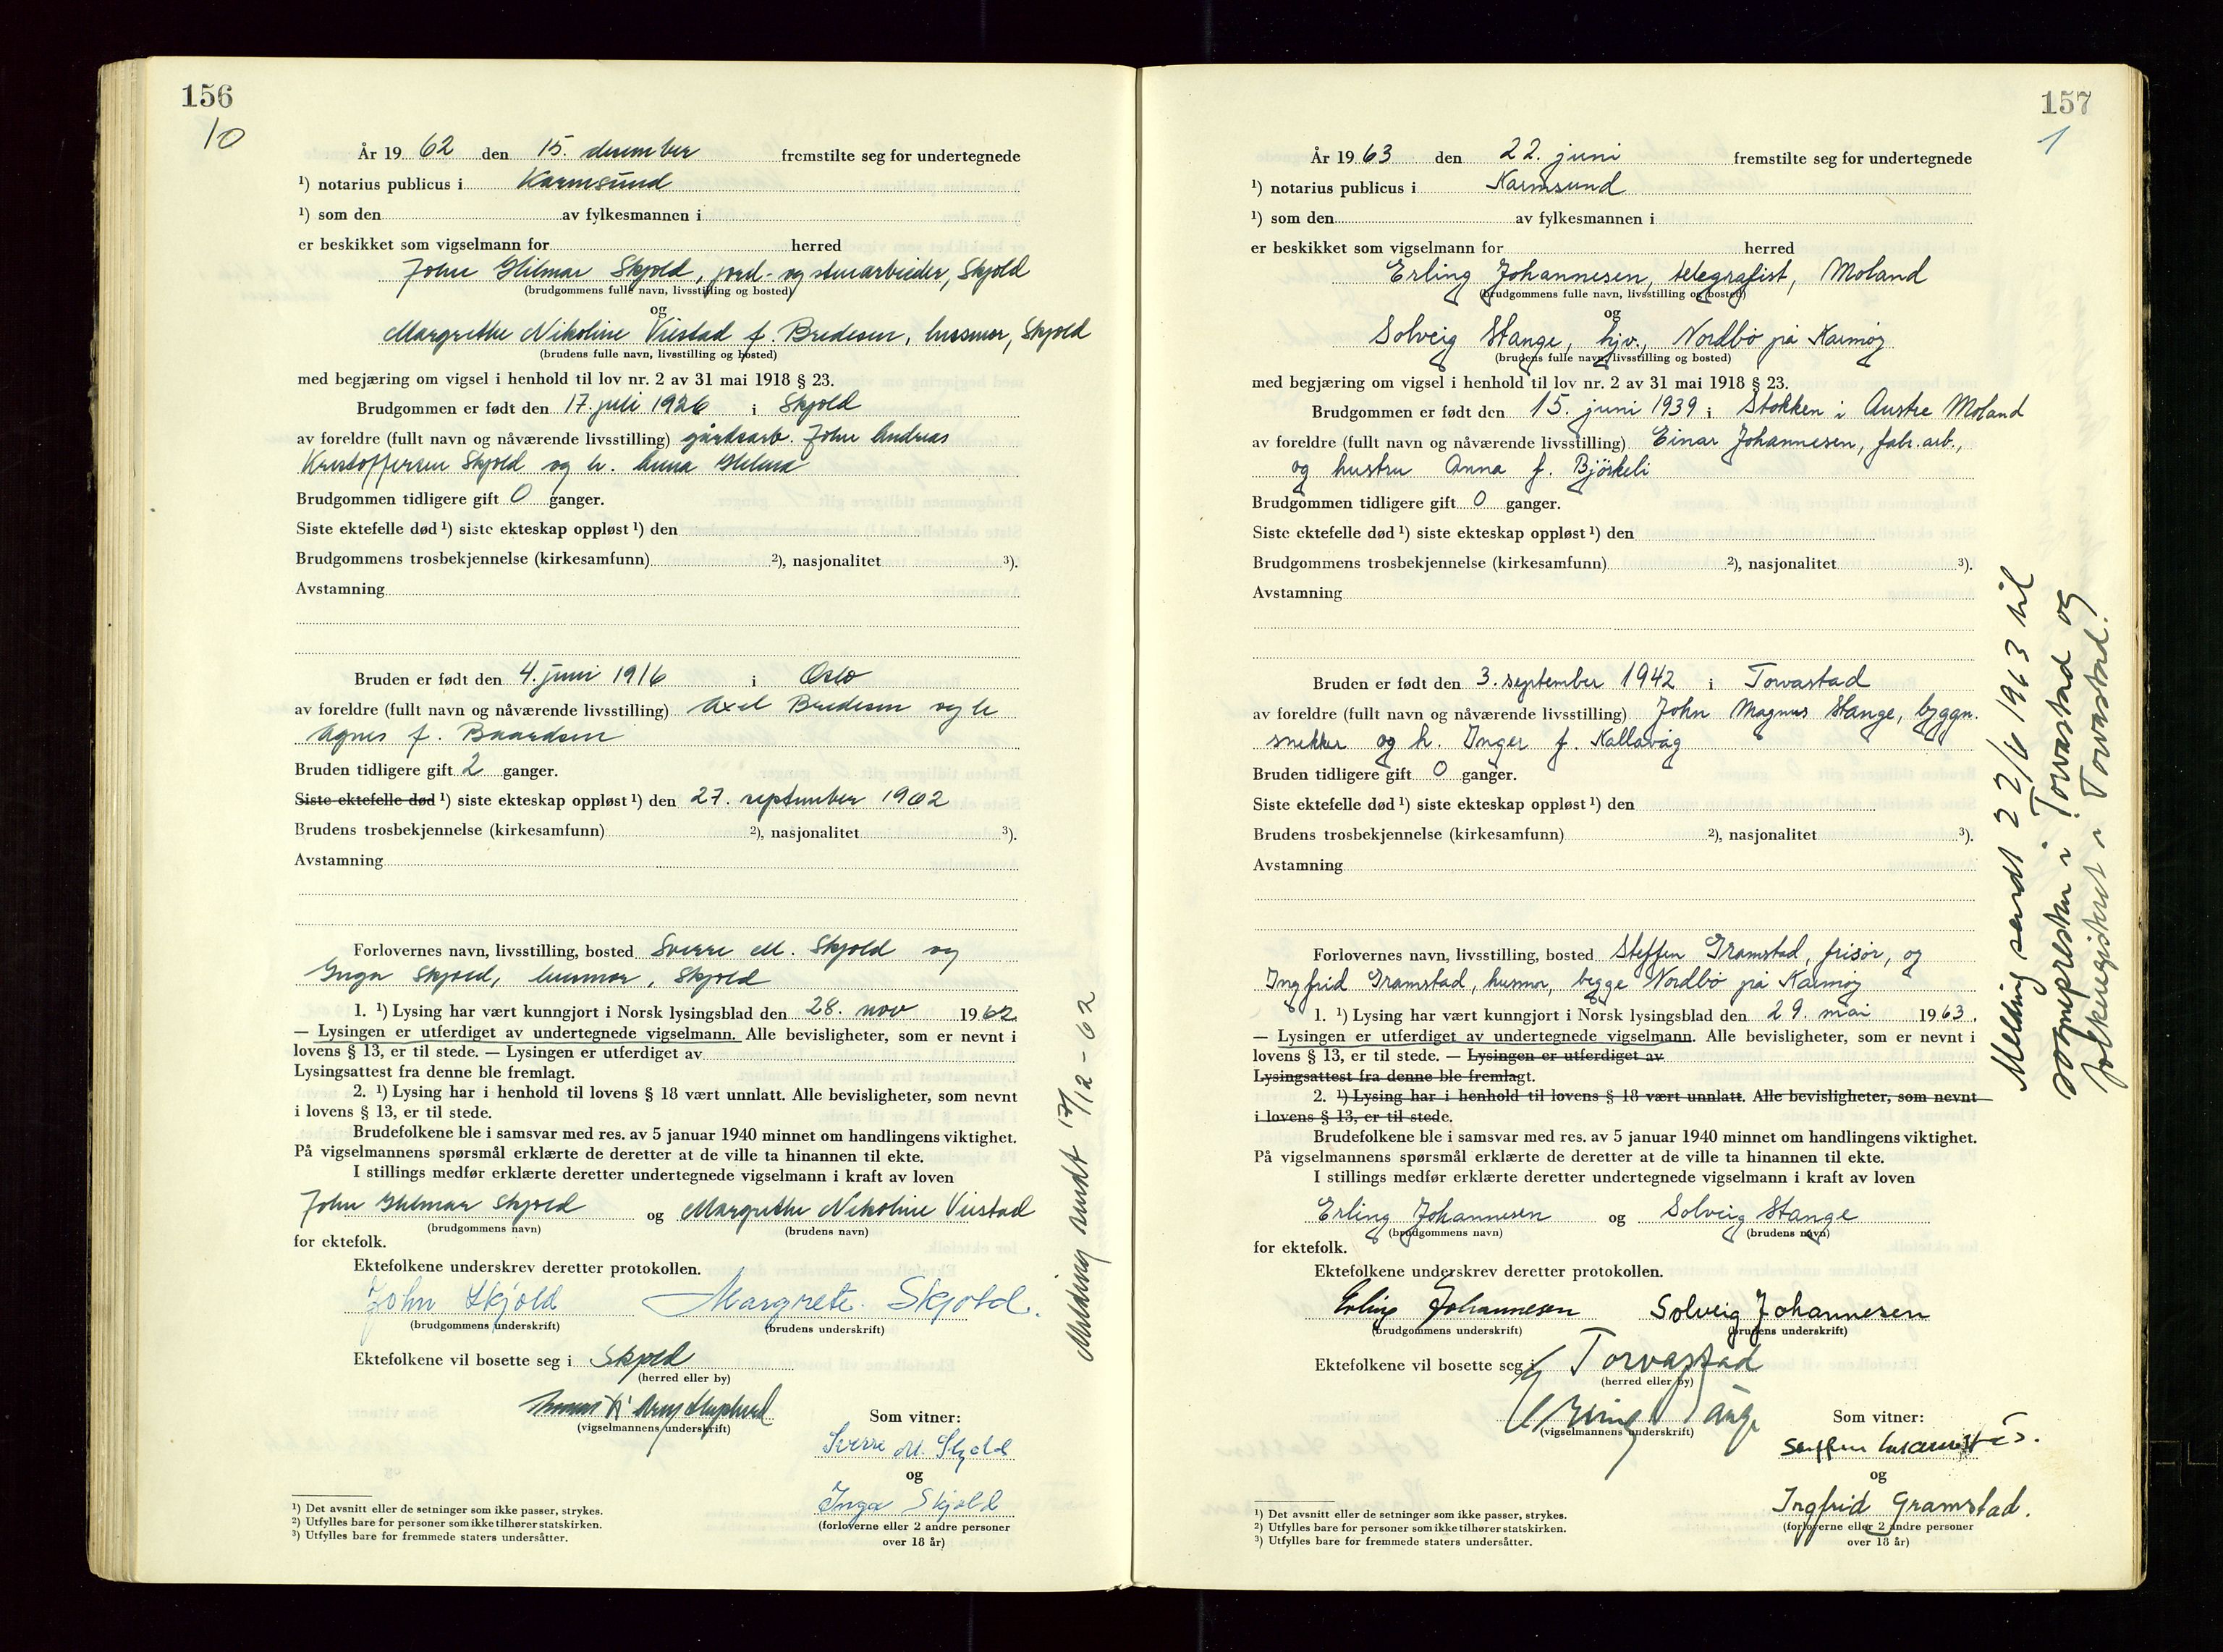 156
10
År 1962 den 15. desember fremstilte seg for undertegnede
¹) notarius publicus i Karmsund
¹) som den av fylkesmannen i
er beskikket som vigselmann for herred
John Hilmar Skjold, jord- og stuearbeider, Skjold
(brudgommens fulle navn, livsstilling og bosted)
og
Margrethe Nikoline Viestad f. Bredesen, husmor, Skjold
(brudens fulle navn, livsstilling og bosted)
med begjæring om vigsel i henhold til lov nr. 2 av 31 mai 1918 § 23.
Brudgommen er født den 17. juli 1926 i Skjold
av foreldre (fullt navn og nåværende livsstilling) gårdsarb. John Andreas
Kristoffersen Skjold og h. Anna Helena
Brudgommen tidligere gift 0 ganger.
Siste ektefelle død ¹) siste ekteskap oppløst ¹) den
Brudgommens trosbekjennelse (kirkesamfunn) ²), nasjonalitet ³).
Avstamning
Bruden er født den 4. juni 1916 i Oslo
av foreldre (fullt navn og nåværende livsstilling) Axel Bredesen og h
Agnes f. Baardsen
Bruden tidligere gift 2 ganger.
Siste ektefelle død ¹) siste ekteskap oppløst ¹) den 27. september 1962
Brudens trosbekjennelse (kirkesamfunn) ²), nasjonalitet ³).
Avstamning
Forlovernes navn, livsstilling, bosted Sverre M. Skjold og
Inga Skjold, husmor, Skjold
1. ¹) Lysing har vært kunngjort i Norsk lysingsblad den 28. nov 1962.
— Lysingen er utferdiget av undertegnede vigselmann. Alle bevisligheter, som er nevnt i
lovens § 13, er til stede. — Lysingen er utferdiget av
Lysingsattest fra denne ble fremlagt.
2. ¹) Lysing har i henhold til lovens § 18 vært unnlatt. Alle bevisligheter, som nevnt
i lovens § 13, er til stede.
Brudefolkene ble i samsvar med res. av 5 januar 1940 minnet om handlingens viktighet.
På vigselmannens spørsmål erklærte de deretter at de ville ta hinannen til ekte.
I stillings medfør erklærte deretter undertegnede vigselmann i kraft av loven
John Hilmar Skjold og Margrethe Nikoline Viestad
(brudgommens navn) (brudens navn)
for ektefolk.
Ektefolkene underskrev deretter protokollen.
John Skjold Margrete Skjold.
(brudgommens underskrift) (brudens underskrift)
Ektefolkene vil bosette seg i Skjold
(herred eller by)
(vigselmannens underskrift)
Som vitner:
Sverre M. Skjold
og
Inga Skjold
(forloverne eller 2 andre personer
over 18 år)
¹) Det avsnitt eller de setninger som ikke passer, strykes.
²) Utfylles bare for personer som ikke tilhører statskirken.
³) Utfylles bare for fremmede staters undersåtter.
Melding sendt 17/12-62
157
1
År 1963 den 22. juni fremstilte seg for undertegnede
¹) notarius publicus i Karmsund
¹) som den av fylkesmannen i
er beskikket som vigselmann for herred
Erling Johannesen, telegrafist, Moland
(brudgommens fulle navn, livsstilling og bosted)
og
Solveig Stange, hjv., Nordbø på Karmøy
(brudens fulle navn, livsstilling og bosted)
med begjæring om vigsel i henhold til lov nr. 2 av 31 mai 1918 § 23.
Brudgommen er født den 15. juni 1939 i Stokken i Austre Moland
av foreldre (fullt navn og nåværende livsstilling) Einar Johannesen, fabr. arb.,
og hustru Anna f. Bjørkeli
Brudgommen tidligere gift 0 ganger.
Siste ektefelle død ¹) siste ekteskap oppløst ¹) den
Brudgommens trosbekjennelse (kirkesamfunn) ²), nasjonalitet ³).
Avstamning
Bruden er født den 3. september 1942 i Torvastad
av foreldre (fullt navn og nåværende livsstilling) John Magnus Stange, byggn.
snekker og h. Inger f. Kallavåg
Bruden tidligere gift 0 ganger.
Siste ektefelle død ¹) siste ekteskap oppløst ¹) den
Brudens trosbekjennelse (kirkesamfunn) ²), nasjonalitet ³).
Avstamning
Forlovernes navn, livsstilling, bosted Steffen Gramstad, frisør, og
Ingfrid Gramstad, husmor, begge Nordbø på Karmøy
1. ¹) Lysing har vært kunngjort i Norsk lysingsblad den 29. mai 1963.
— Lysingen er utferdiget av undertegnede vigselmann. Alle bevisligheter, som er nevnt i
lovens § 13, er til stede. — Lysingen er utferdiget av
Lysingsattest fra denne ble fremlagt.
2. ¹) Lysing har i henhold til lovens § 18 vært unnlatt. Alle bevisligheter, som nevnt
i lovens § 13, er til stede.
Brudefolkene ble i samsvar med res. av 5 januar 1940 minnet om handlingens viktighet.
På vigselmannens spørsmål erklærte de deretter at de ville ta hinannen til ekte.
I stillings medfør erklærte deretter undertegnede vigselmann i kraft av loven
Erling Johannesen og Solveig Stange
(brudgommens navn) (brudens navn)
for ektefolk.
Ektefolkene underskrev deretter protokollen.
Erling Johannesen Solveig Johannesen
(brudgommens underskrift) (brudens underskrift)
Ektefolkene vil bosette seg i Torvastad
(herred eller by)
(vigselmannens underskrift)
Som vitner:
Steffen Gramstad.
og
Ingfrid Gramstad.
(forloverne eller 2 andre personer
over 18 år)
¹) Det avsnitt eller de setninger som ikke passer, strykes.
²) Utfylles bare for personer som ikke tilhører statskirken.
³) Utfylles bare for fremmede staters undersåtter.
Melding sendt 22/6 1963 til
sognepresten i Torvastad og
folkeregistret i Torvastad.